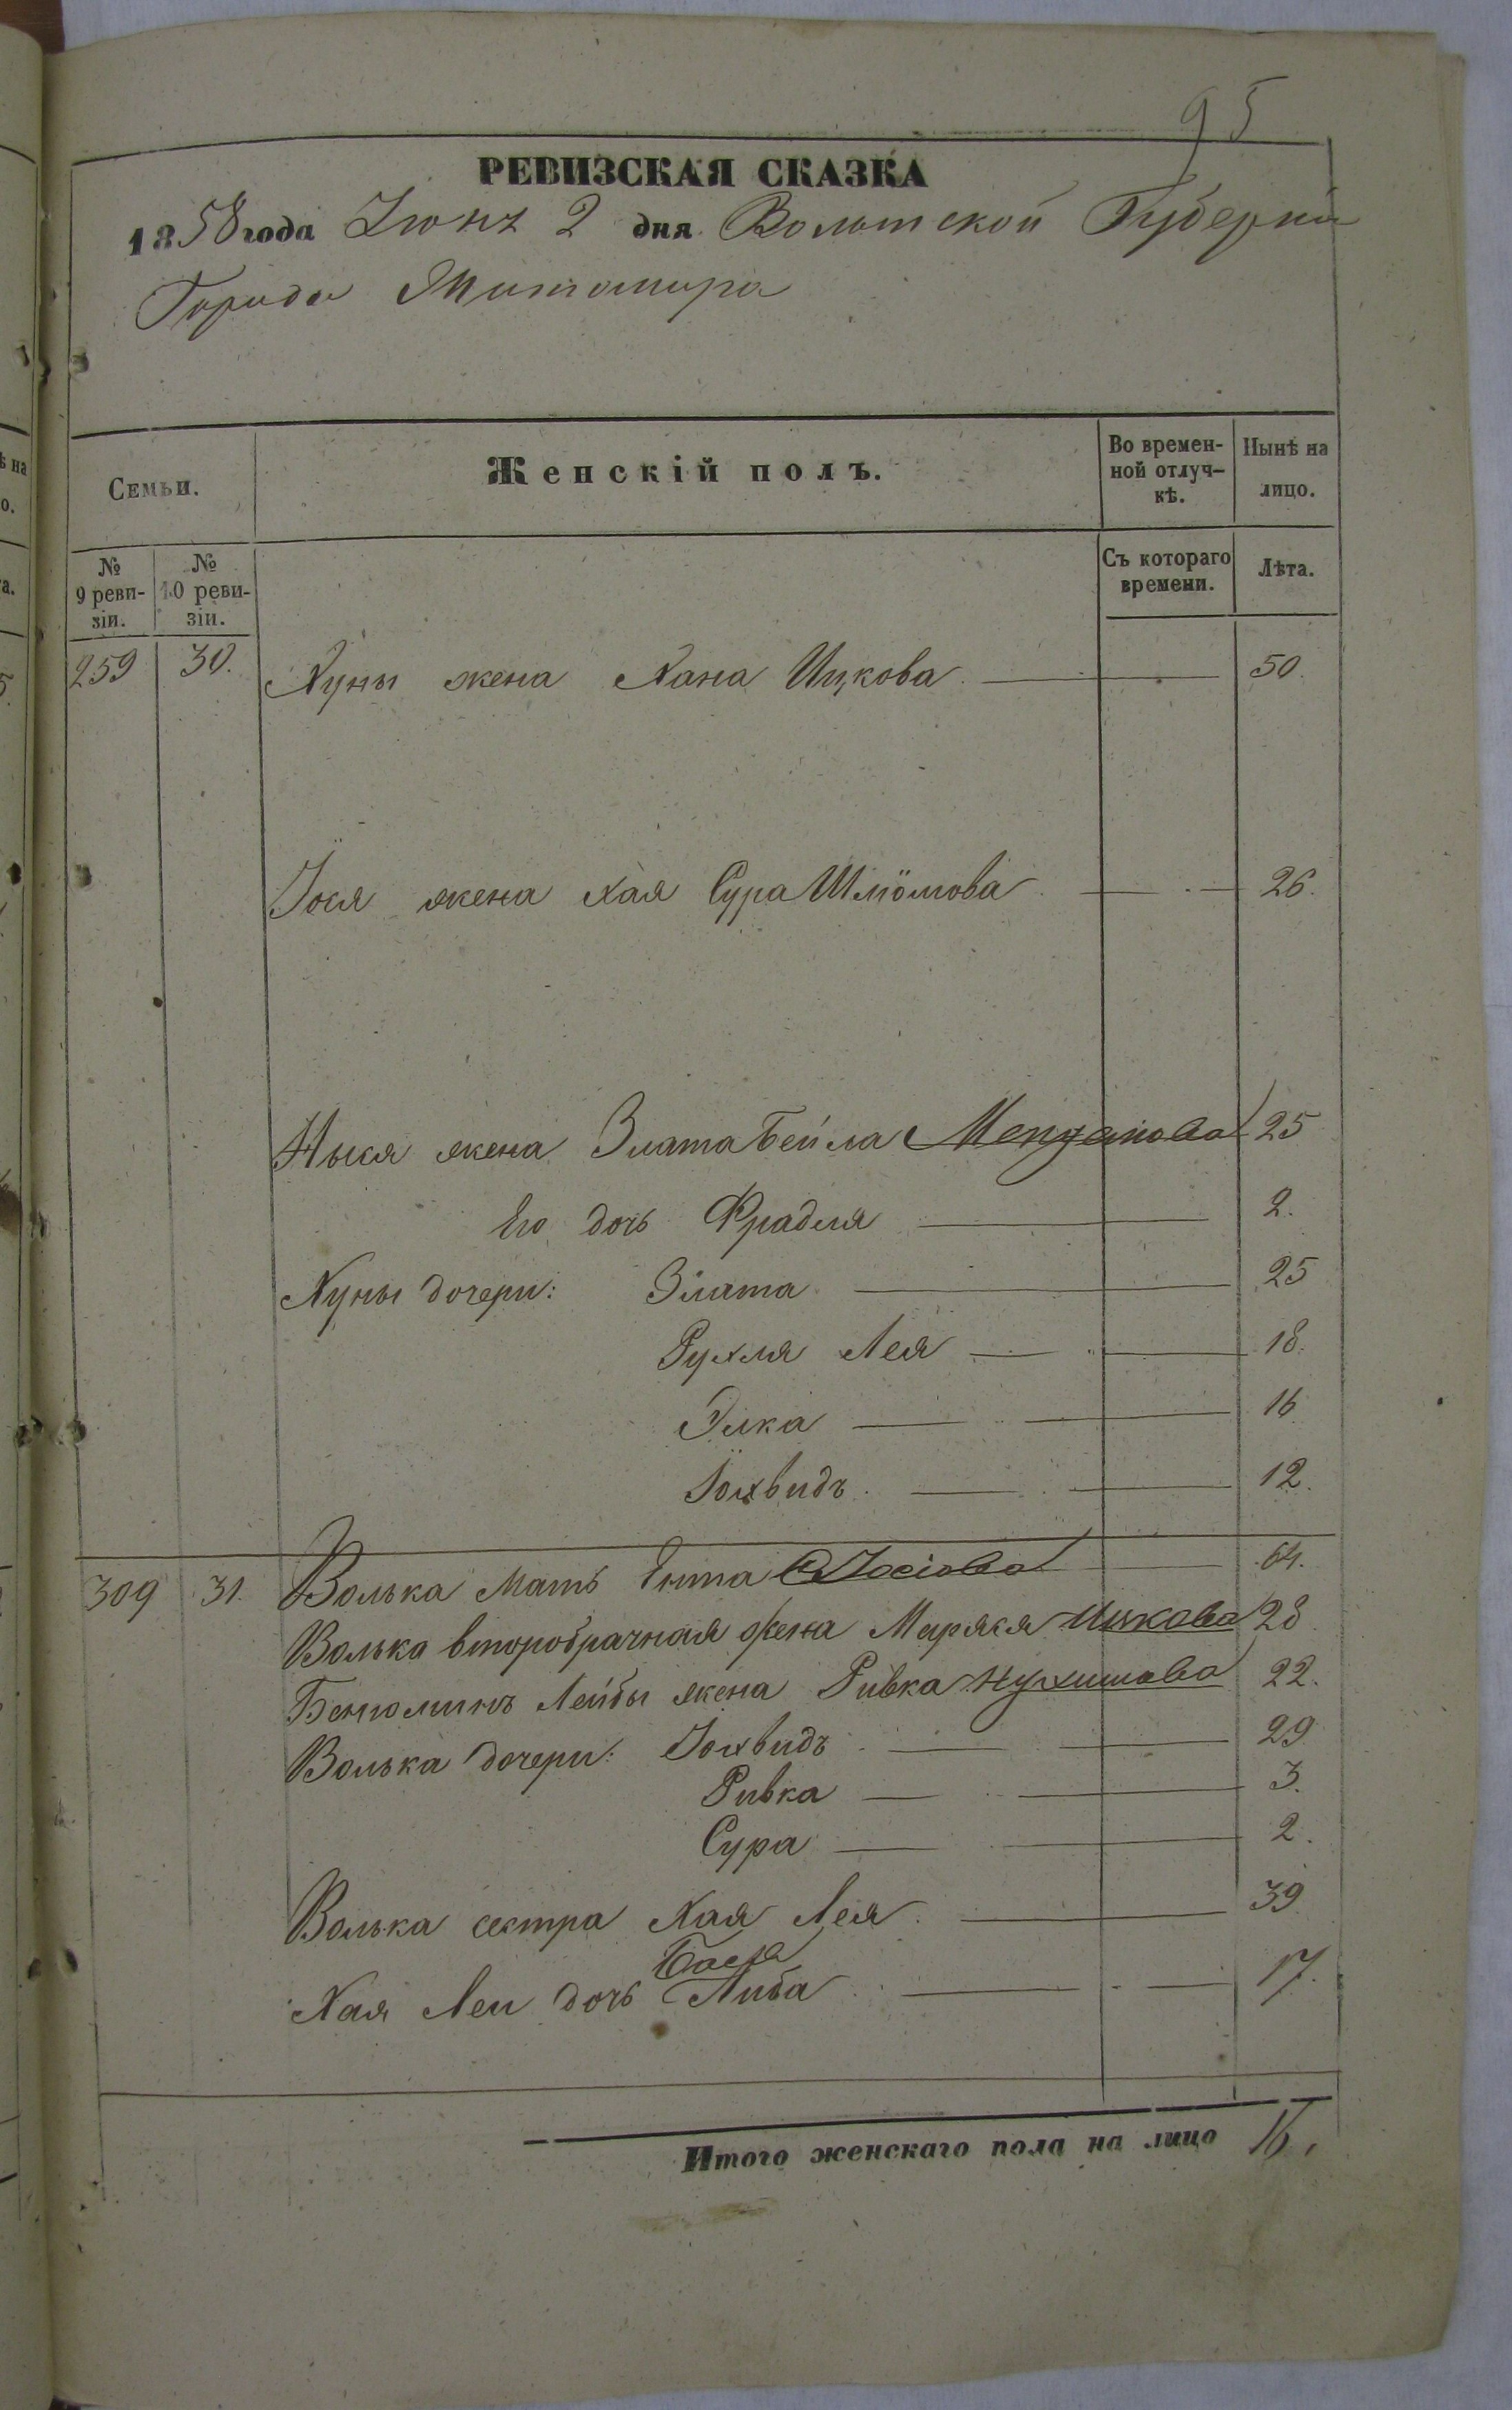 95
РЕВИЗСКАЯ СКАЗКА
1858 года Іюня 2 дня Волынской Губерніи
Города Житомира
Семьи.
Женскій полъ.
Во времен-
ной отлуч-
кѣ.
Нынѣ на
лицо.
№
9 реви-
зіи.
№
10 реви-
зіи.
Съ котораго
времени.
Лѣта.
259 30. Хуны жена Хана Ицкова 50.
Іося жена Хая Сура Шліомова 26.
жена Злата Бейла 25
Его дочь Фрадля 2.
Хуны дочери: Злата 25
Рухля Лея 18.
Элка 16
Іохвидъ 12.
309 31. Волька мать Ента Іосіова 64.
Волька второбрачная жена Маряся Ицкова 28
Беніоминъ Лейбы жена Ривка Нухимова 22.
Волька дочери: Іохвидъ 29
Ривка 3.
Сура 2.
Волька сестра Хая Лея 39
Бася
Хая Леи дочь Либа 17.
Итого женскаго пола на лицо 16.